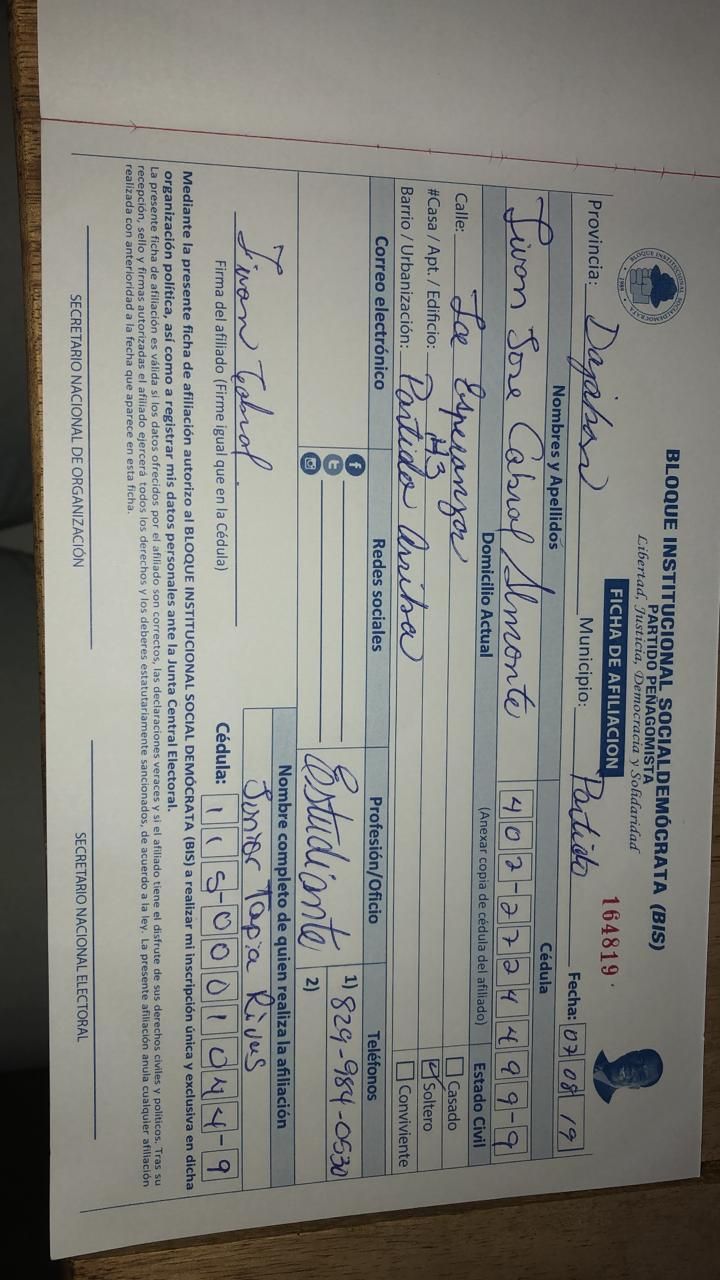 BLOQUE INSTITUCIONAL SOCIALDEMÓCRATA (BIS)
PARTIDO PEÑAGOMISTA
Libertad, Justicia, Democracia y Solidaridad
FICHA DE AFILIACION
164819
BLOQUE INSTITUCIONAL SOCIALDEMOCRATA
Provincia: Dajabon Municipio: Partido Fecha: 07 08 19
Nombres y Apellidos Cédula
Jose Cabral Almonte 402-2724499-9
Domicilio Actual (Anexar copia de cédula del afiliado) Estado Civil
Calle: La Esperanza Casado
#Casa / Apt. / Edificio: #3 Soltero
Barrio / Urbanización: Partido Arriba Conviviente
Correo electrónico Redes sociales Profesión/Oficio Teléfonos
Estudiante 1) 829-984-0530
2)
Nombre completo de quien realiza la afiliación
Junior Tapia Rivas
Cabral
Firma del afiliado (Firme igual que en la Cédula)
Cédula: 115-0001044-9
Mediante la presente ficha de afiliación autorizo al BLOQUE INSTITUCIONAL SOCIAL DEMÓCRATA (BIS) a realizar mi inscripción única y exclusiva en dicha
organización política, así como a registrar mis datos personales ante la Junta Central Electoral.
La presente ficha de afiliación es válida si los datos ofrecidos por el afiliado son correctos, las declaraciones veraces y si el afiliado tiene el disfrute de sus derechos civiles y políticos. Tras su
recepción, sello y firmas autorizadas el afiliado ejercerá todos los derechos y los deberes estatutariamente sancionados, de acuerdo a la ley. La presente afiliación anula cualquier afiliación
realizada con anterioridad a la fecha que aparece en esta ficha.
SECRETARIO NACIONAL DE ORGANIZACIÓN SECRETARIO NACIONAL ELECTORAL